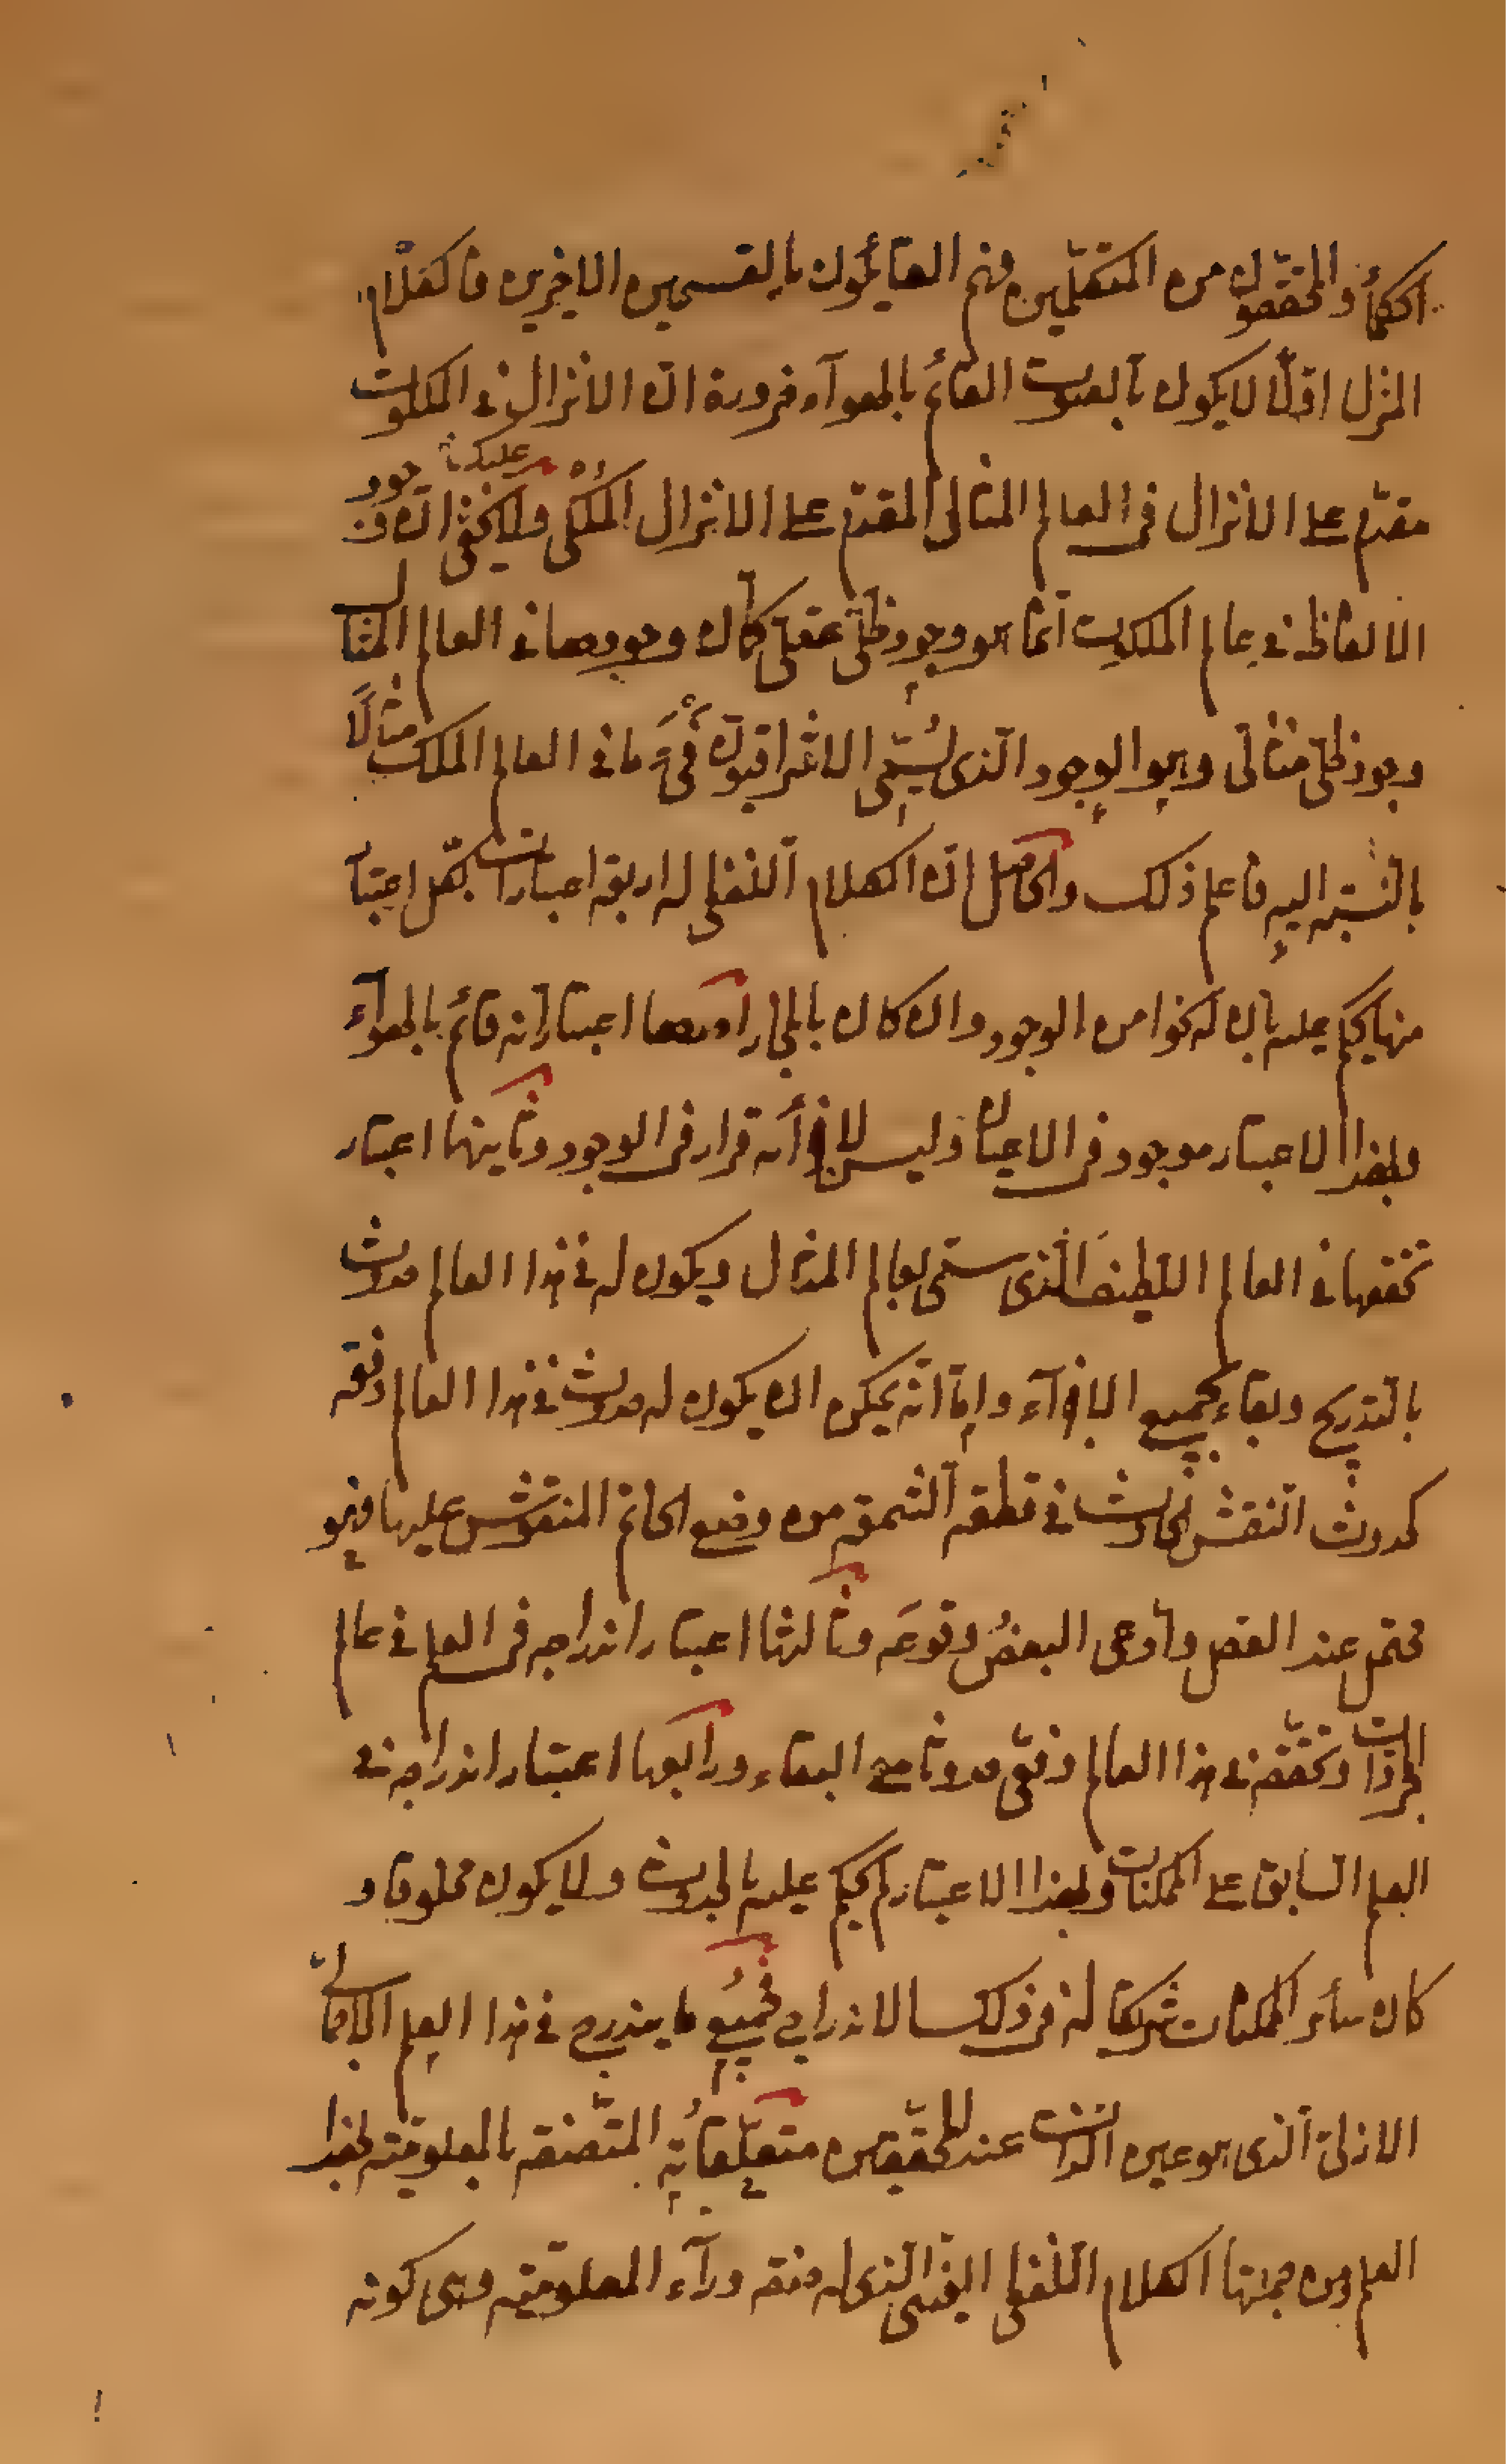 الحكماء والمحققون من المتكلمين فهم القائلون بالقسمين الاخيرين فالكلام
المنزل اولًا لا يكون بالصوت القائم بالهوآء ضرورة انّ الانزال في الملكوت
مقدّم على الانزال في العالم المثالى المقدّم على الانزال المُلْكى ولا يخفى عليك انّ وجود
الالفاظ في عالم الملكوت انّما هو وجود ظلّى عقلى كما ان وجودها في العالم المثال
وجود ظلّى مثالى وهو الوجود الّذى يُسمّى الاشراقيون ما في العالم الملك مثالًا
بالنّسبة اليه فاعلم ذلك والحاصل انّ الكلام اللّفظى له اربعة اعتبارات بكلّ اعتبار
منها يحكم عليه بان له نحوا من الوجود وان كان بالمجاز احدها اعتبار انه قائم بالهوآء
وبهذا الاعتبار موجود في الاعيان وليس لاجزائه قرار في الوجود وثانيها اعتبار
تحققها في العالم اللّطيف الّذى سمّى بعالم المثال ويكون له في هذا العالم حدوث
بالتّدريج وبقاء بجميع الاجزآء وامّا انّه يمكن ان يكون له حدوث في هذا العالم دفعة
كحدوث النّقش الحادث في قطعة الشّمعة من وضع الخاتم المنقوش عليها فهو
محتمل عند العقل وادّعى البعضُ وقوعَه وثالثها اعتبار اندراجه في العلم في عالم
المجردات وتحقّقه في هذا العالم دفعّى حدوثا مع البقاء ورابعها اعتبار اندراجه في
العلم السّابق على الممكنات وبهذا الاعتبار لم يحكم عليه بالحدوث ولا يكون مخلوقا و
كان سائر الممكنات شريكا له في ذلك الاندراج فجميعُ ما يندرج في هذا العلم الاجمالىّ
الازلىّ الّذى هو عين الذات عند المحقّقين متعلّقاتُه المتّصفة بالمعلوميّة لهذا
العلم ومن جملتها الكلام اللّفظى النفسى الّذى له صفة ورآء المعلوميّة وهى كونه